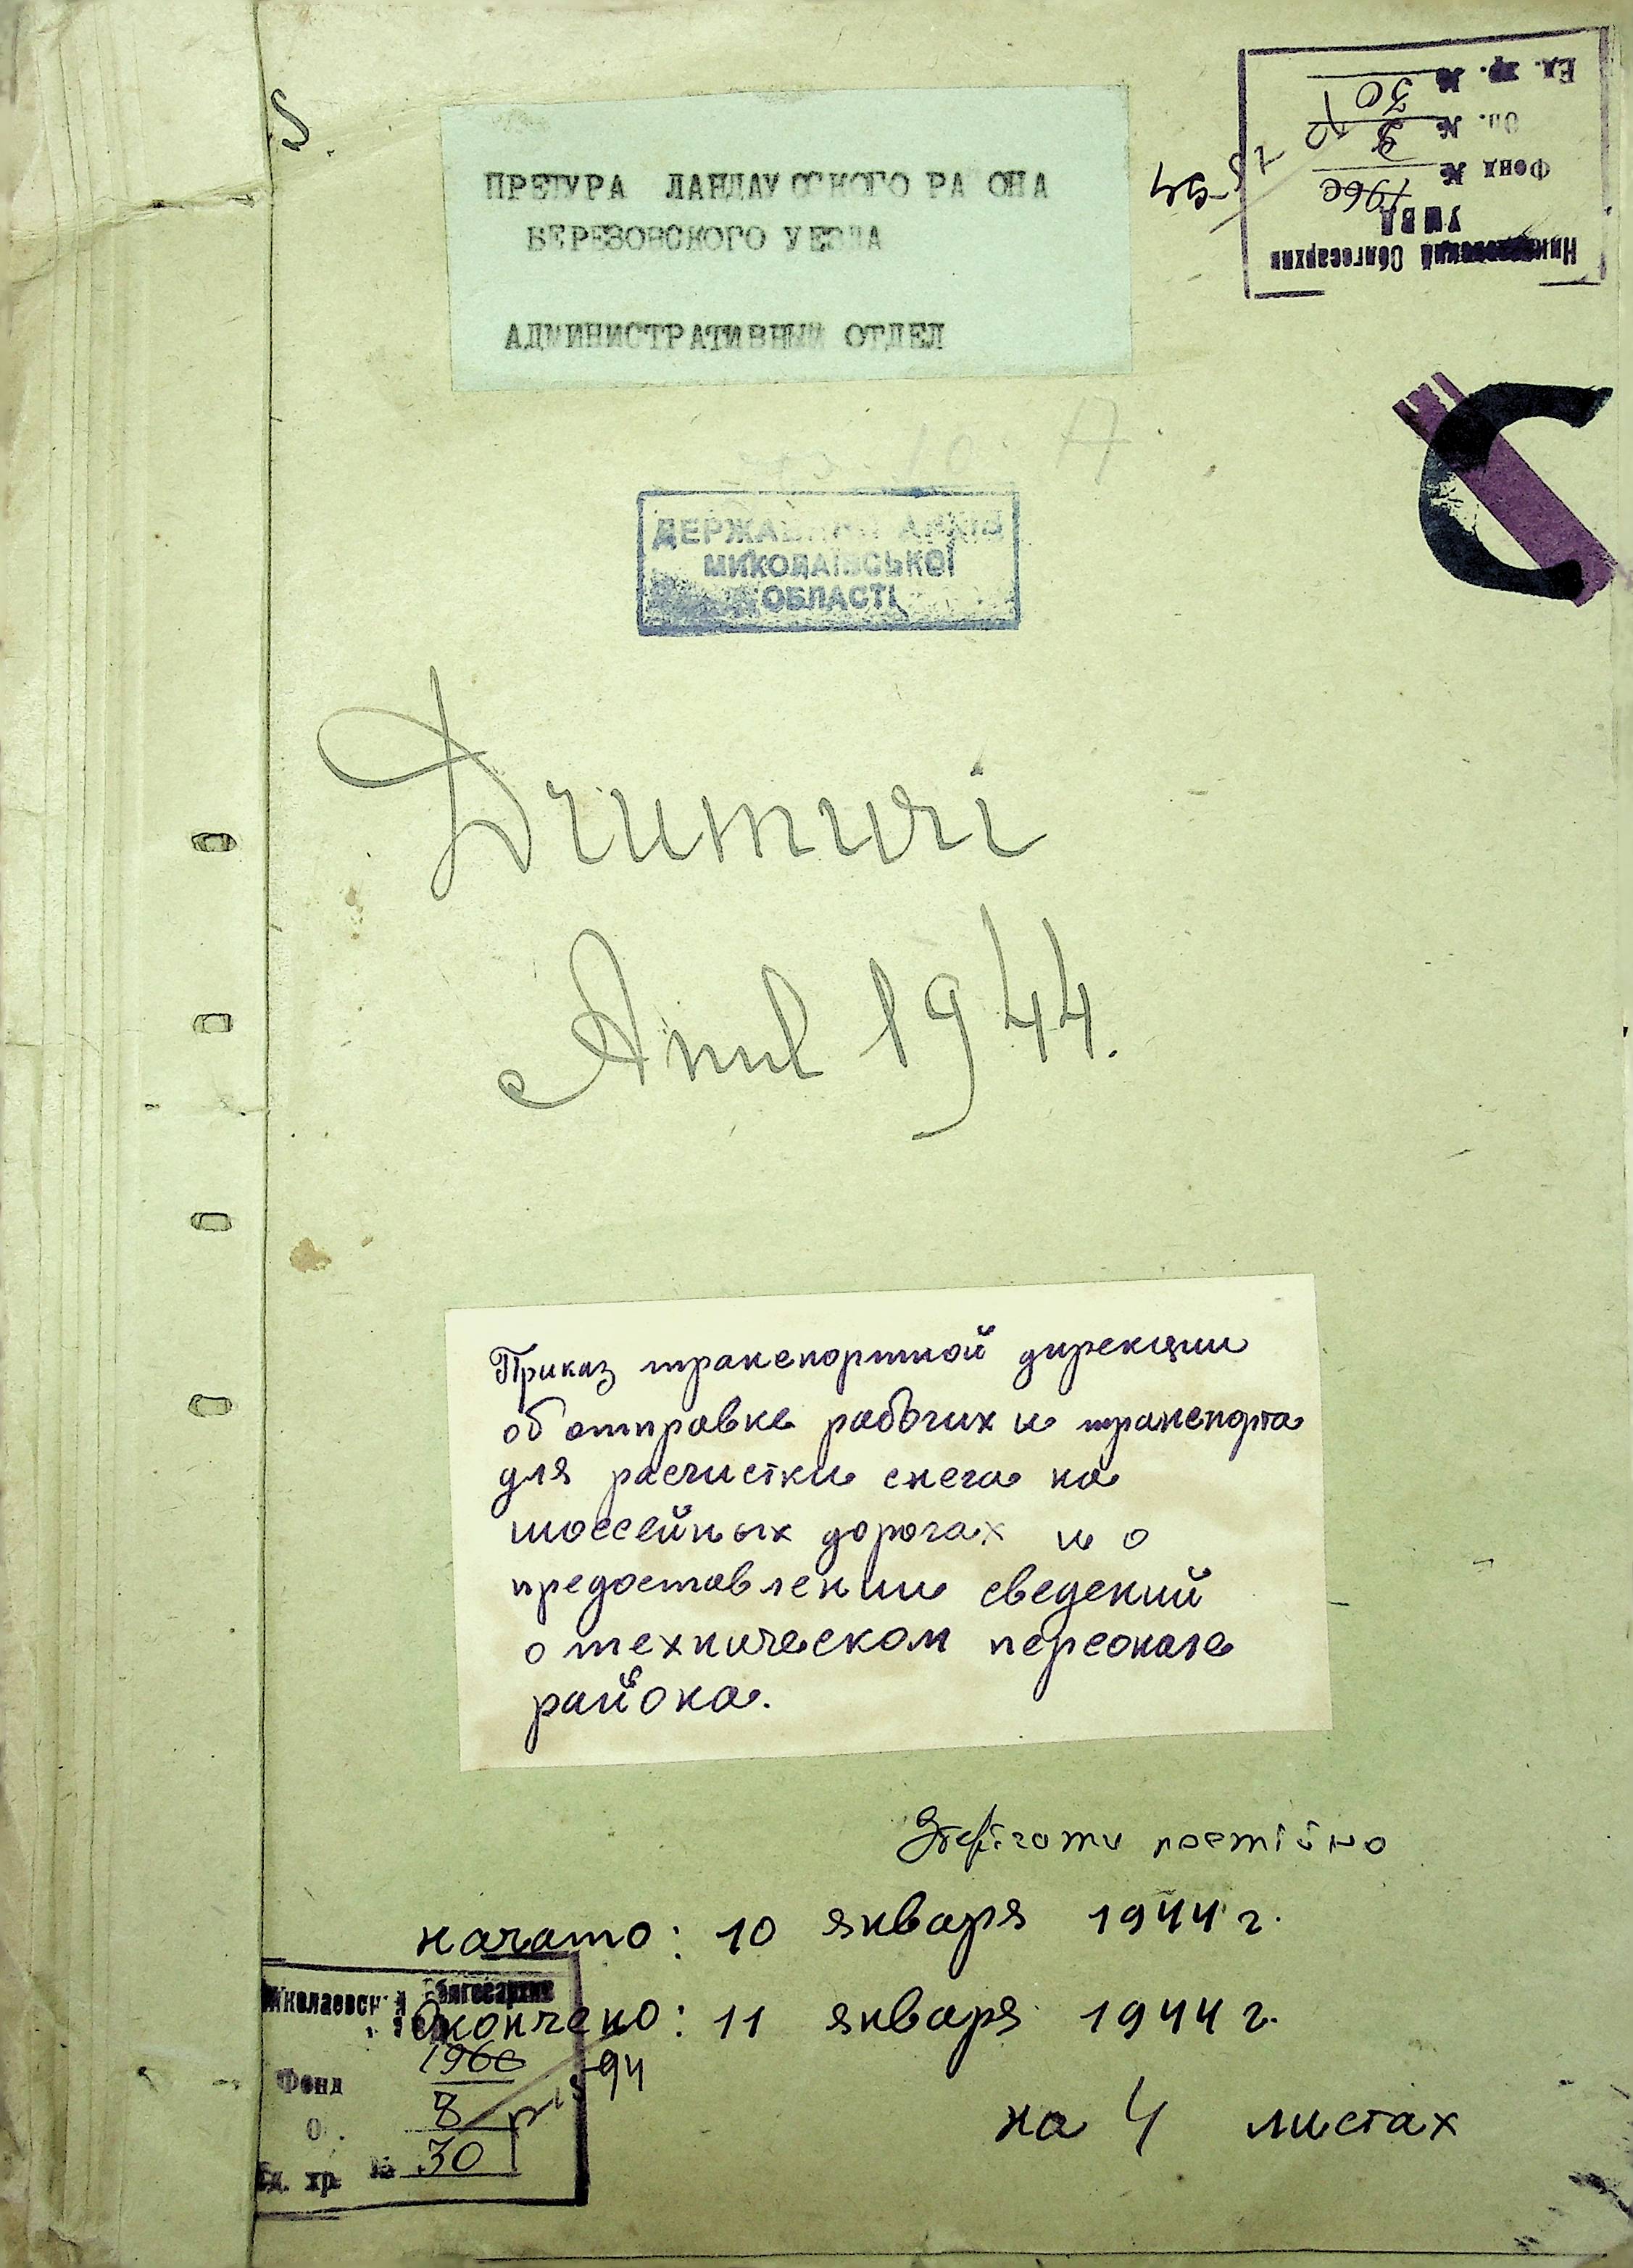 ПРЕТУРА ЛАНДАУССКОГО РА ОНА
БЕРЕЗОВСКОГО УЕЗДА
АДМИНИСТРАТИВНЫЙ ОТДЕЛ
Николаевский Облгосархив
УМВД
Фонд № 1960
Оп. № 8
Ед. хр. № 30
С
ДЕРЖАВНИЙ АРХІВ
МИКОЛАЇВСЬКОЇ
ОБЛАСТІ
Drumuri
Anul 1944.
Приказ транспортной дирекции
об отправке рабочих и транспорта
для расчистки снега на
шоссейных дорогах и о
предоставлении сведений
о техническом персонале
района.
Зберігати постійно
начато: 10 января 1944 г.
Окончено: 11 января 1944 г.
на 4 листах
Николаевский Облгосархив
Фонд 1960
О. 8
Ед. хр. № 30